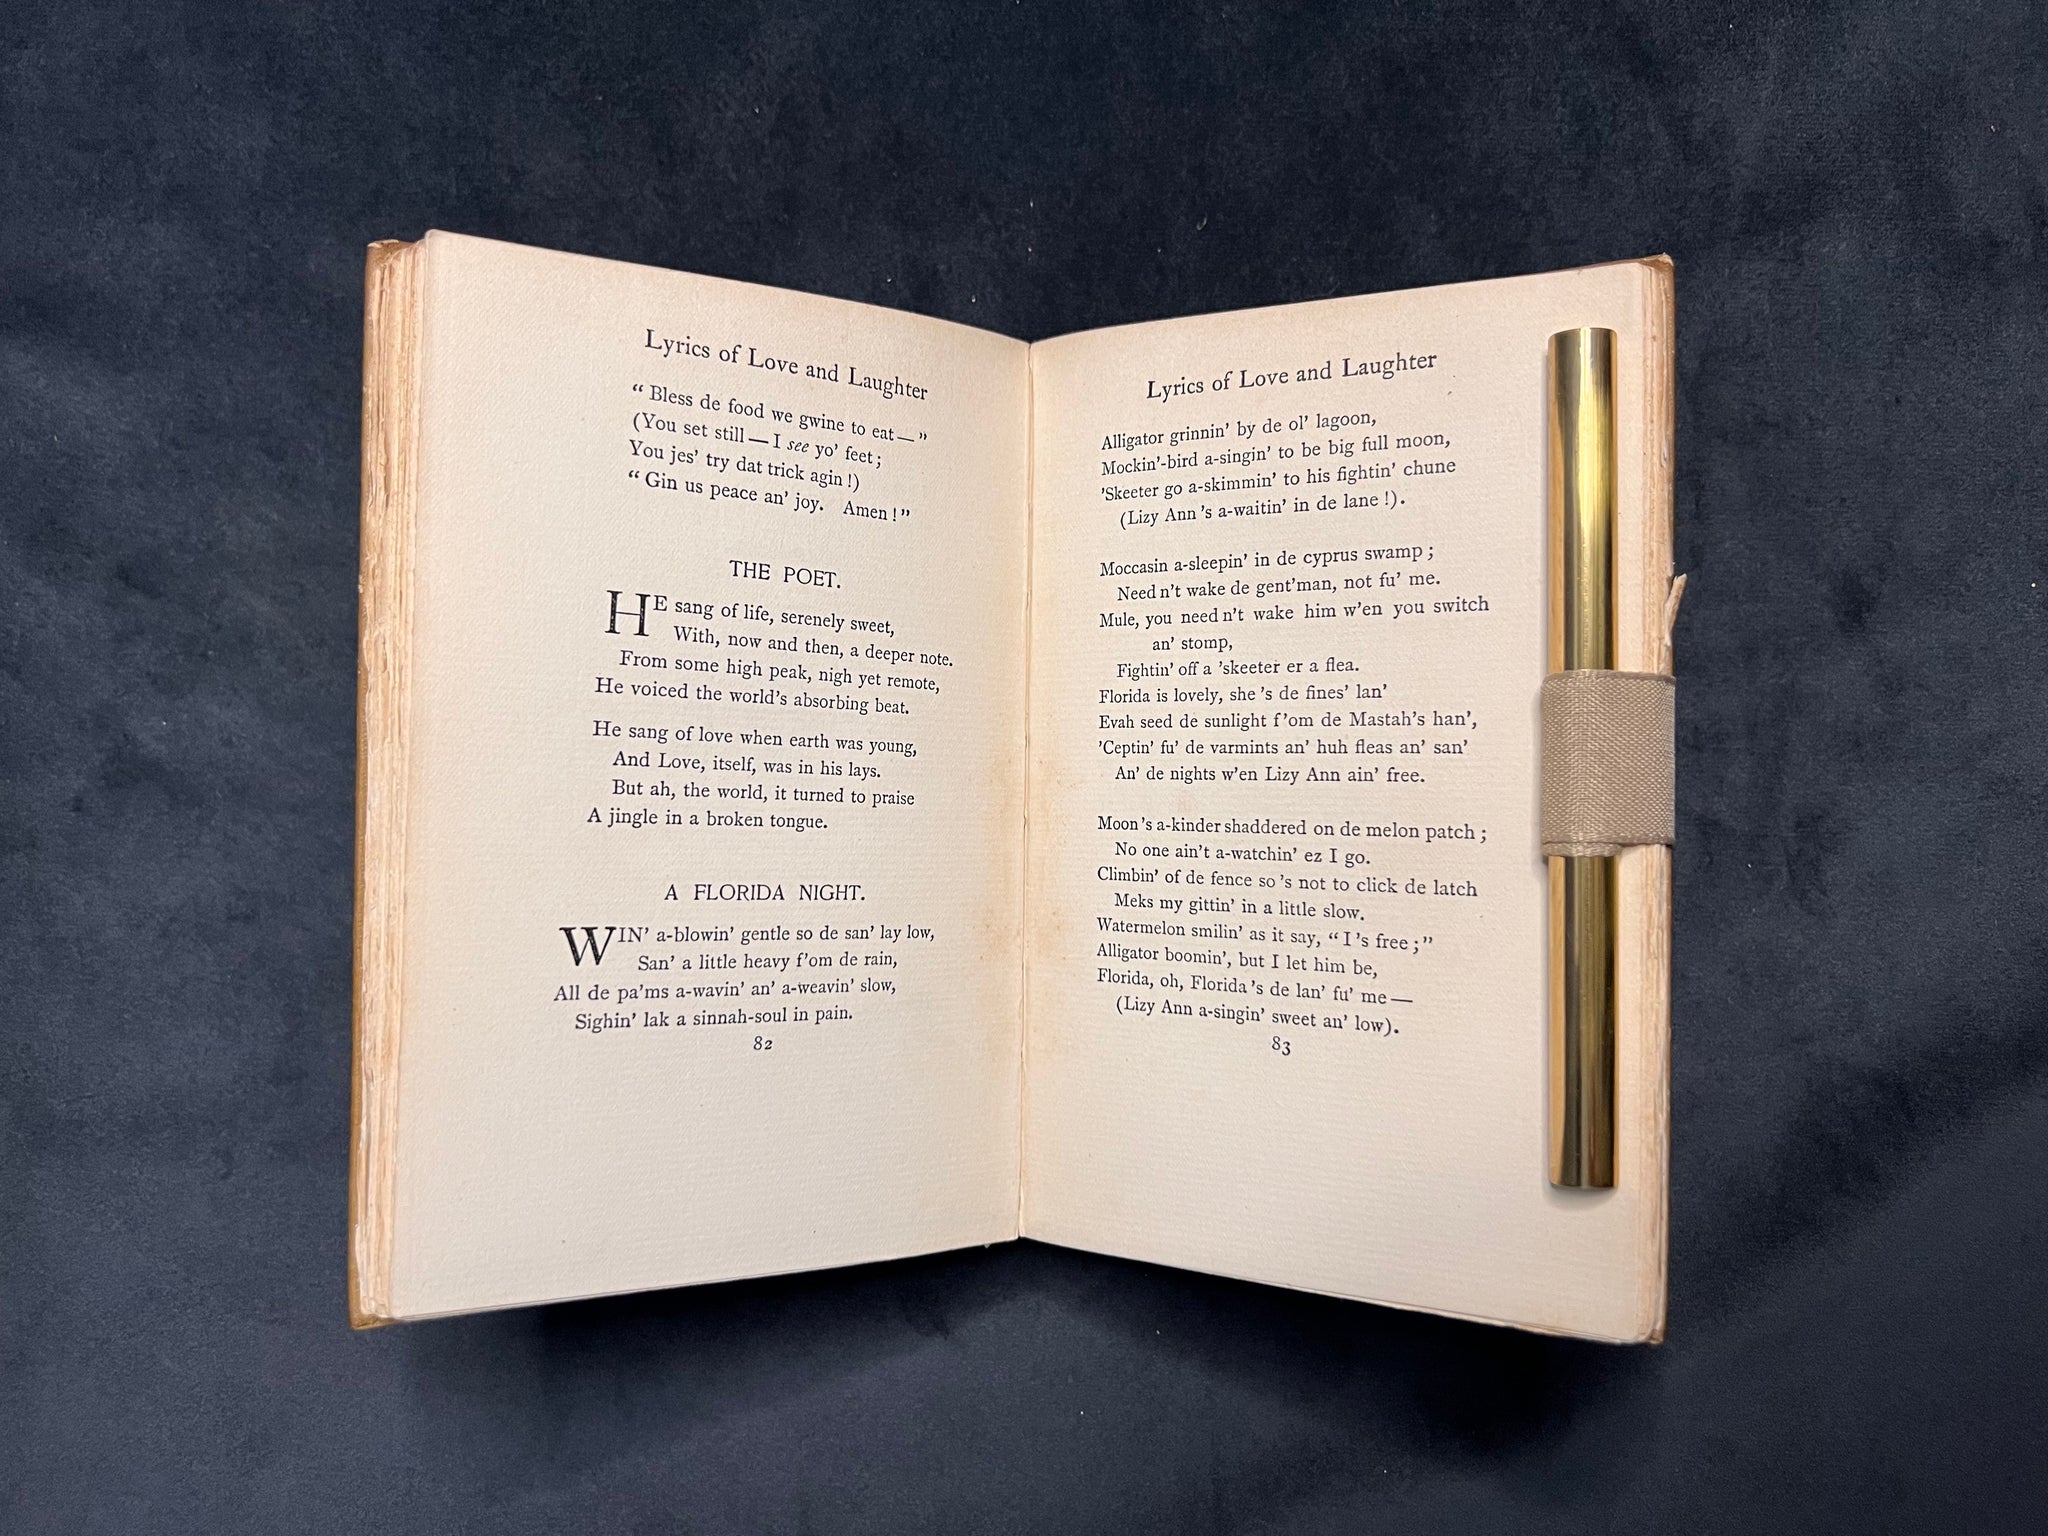 Lyrics of Love and Laughter
“ Bless de food we gwine to eat — ”
(You set still — I see yo’ feet ;
You jes’ try dat trick agin !)
“ Gin us peace an’ joy. Amen ! ”
THE POET.
HE sang of life, serenely sweet,
With, now and then, a deeper note.
From some high peak, nigh yet remote,
He voiced the world’s absorbing beat.
He sang of love when earth was young,
And Love, itself, was in his lays.
But ah, the world, it turned to praise
A jingle in a broken tongue.
A FLORIDA NIGHT.
WIN’ a-blowin’ gentle so de san’ lay low,
San’ a little heavy f’om de rain,
All de pa’ms a-wavin’ an’ a-weavin’ slow,
Sighin’ lak a sinnah-soul in pain.
82
Lyrics of Love and Laughter
Alligator grinnin’ by de ol’ lagoon,
Mockin’-bird a-singin’ to be big full moon,
’Skeeter go a-skimmin’ to his fightin’ chune
(Lizy Ann ’s a-waitin’ in de lane !).
Moccasin a-sleepin’ in de cyprus swamp ;
Need n’t wake de gent’man, not fu’ me.
Mule, you need n’t wake him w’en you switch
an’ stomp,
Fightin’ off a ’skeeter er a flea.
Florida is lovely, she ’s de fines’ lan’
Evah seed de sunlight f’om de Mastah’s han’,
’Ceptin’ fu’ de varmints an’ huh fleas an’ san’
An’ de nights w’en Lizy Ann ain’ free.
Moon ’s a-kinder shaddered on de melon patch ;
No one ain’t a-watchin’ ez I go.
Climbin’ of de fence so ’s not to click de latch
Meks my gittin’ in a little slow.
Watermelon smilin’ as it say, “ I ’s free ; ”
Alligator boomin’, but I let him be,
Florida, oh, Florida ’s de lan’ fu’ me —
(Lizy Ann a-singin’ sweet an’ low).
83